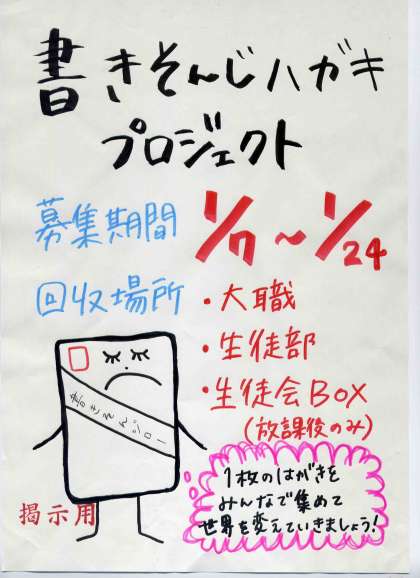 書きそんじハガキ
プロジェクト
募集期間 1/7〜1/24
回収場所 ・大職
・生徒部
・生徒会BOX
(放課後のみ)
書きそんジロー
掲示用
1枚のはがきを
みんなで集めて
世界を変えていきましょう!